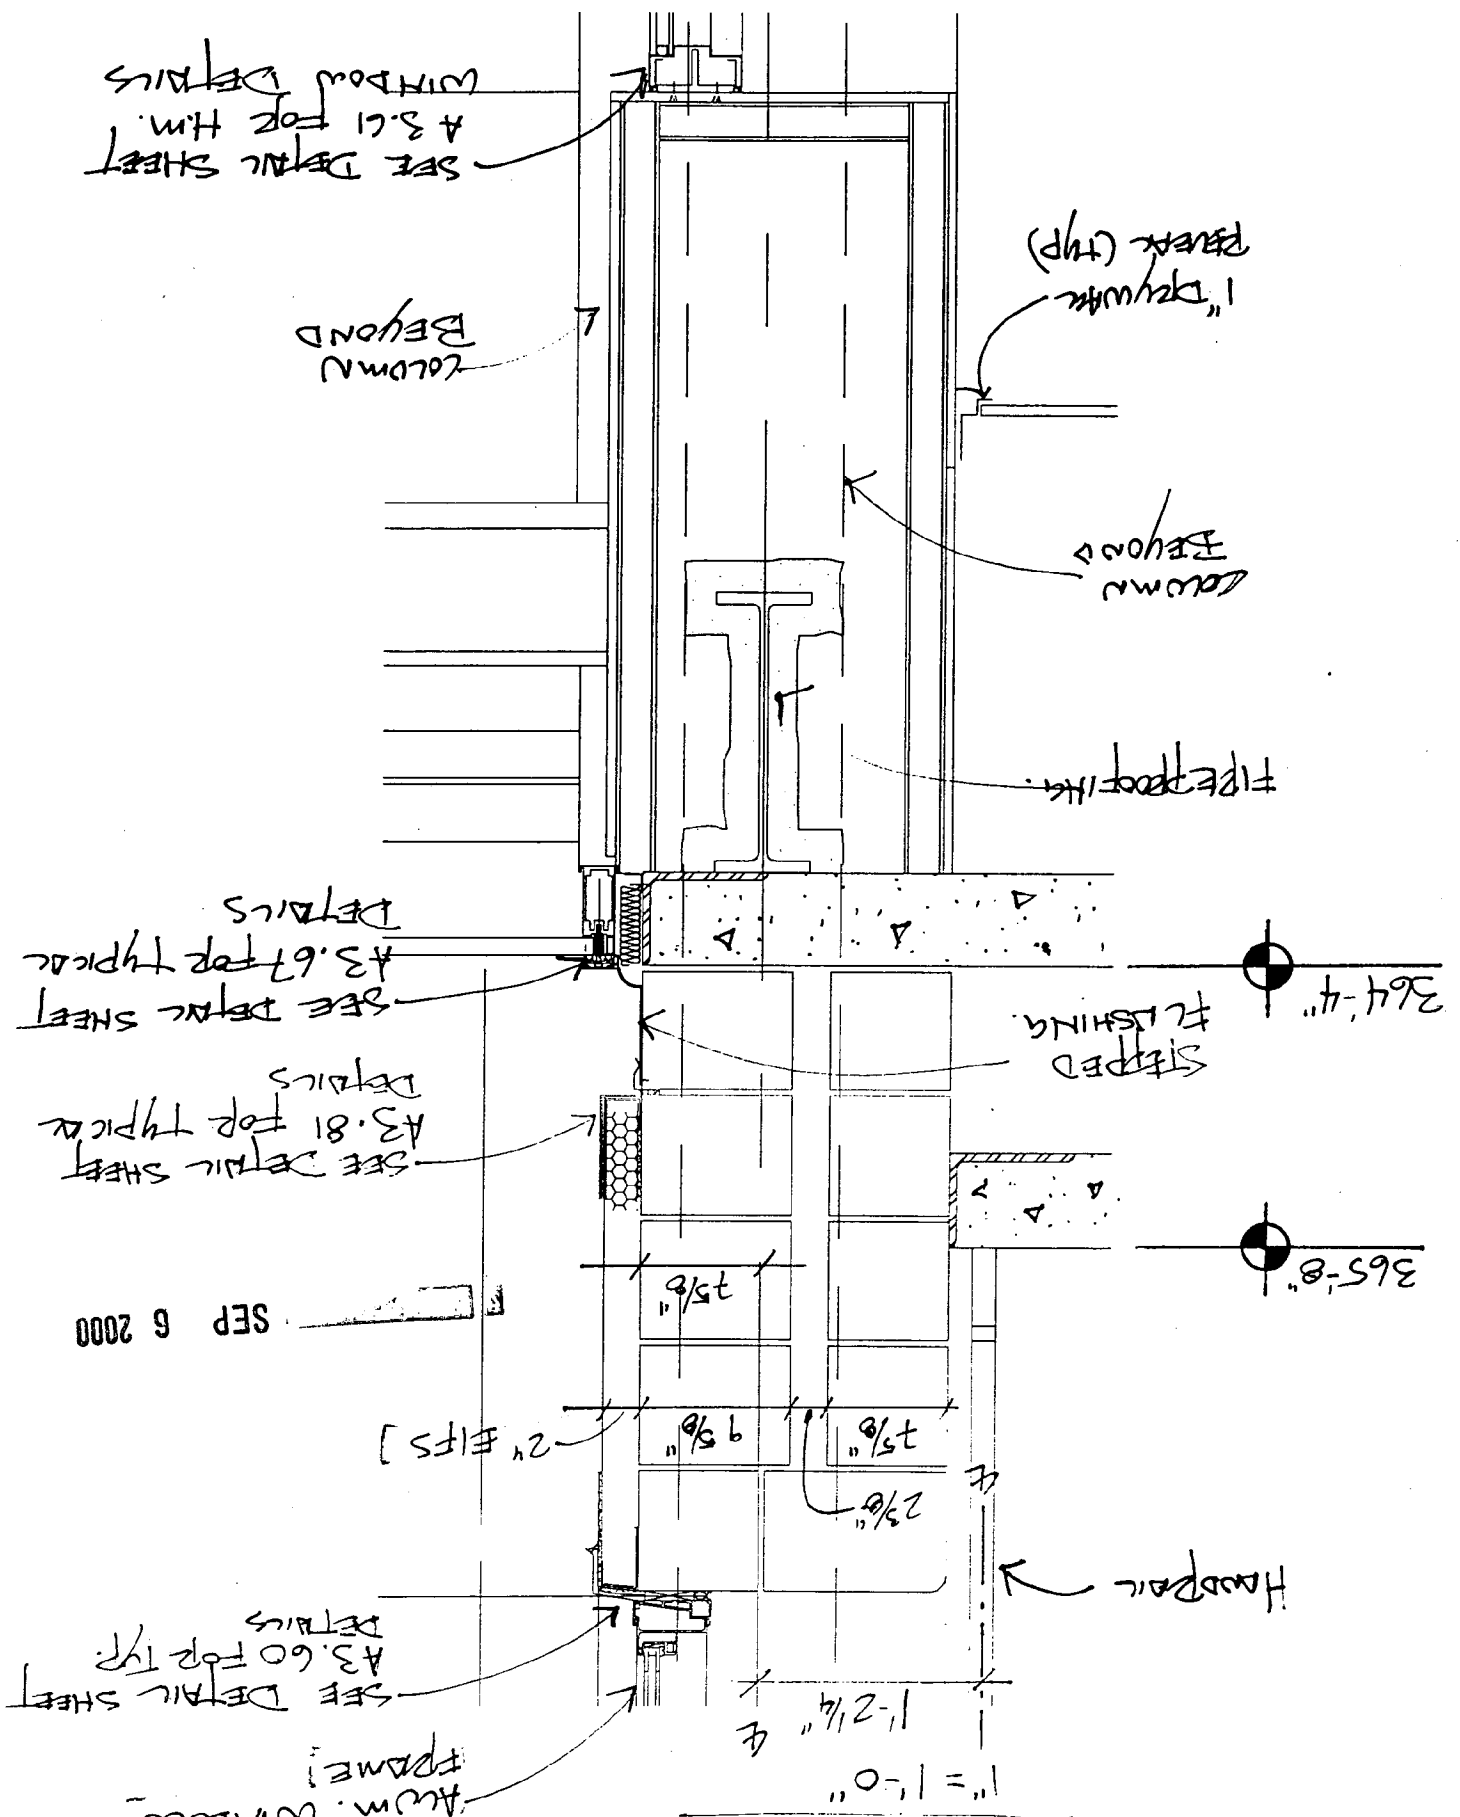 1" = 1'-0"
ALUM. WINDOW
FRAME]
℄
1'-2 1/4"
SEE DETAIL SHEET
A3.60 FOR TYP.
DETAILS
HANDRAIL
2 3/8"
℄
2" EIFS]
9 5/8"
7 5/8"
SEP 6 2000
7 5/8"
365'-8"
SEE DETAIL SHEET
A3.81 FOR TYPICAL
DETAILS
STEPPED
FLASHING.
364'-4"
SEE DETAIL SHEET
A3.67 FOR TYPICAL
DETAILS
FIREPROOFING.
COLUMN
BEYOND
COLUMN
BEYOND
1" DRYWALL
REVEAL (TYP)
SEE DETAIL SHEET
A3.61 FOR H.M.
WINDOW DETAILS